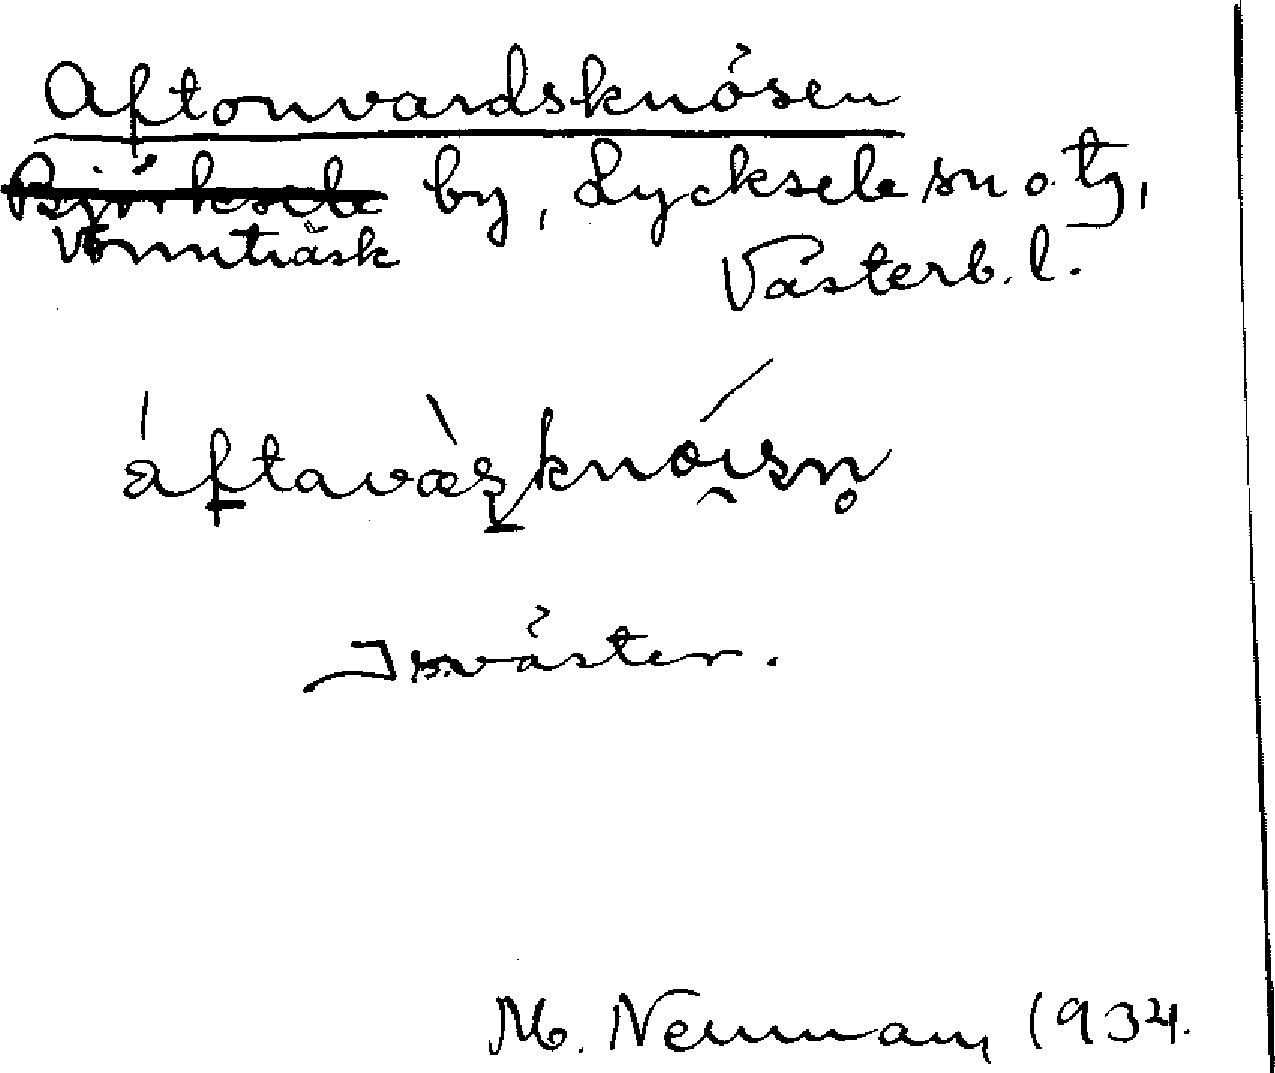 Aftonvardsknösen
Björksele by, Lycksele sn o. tg,
Vormträsk Västerb. l.
áftavàrs̩knöisn̥
Isväster.
M. Neuman, 1934.